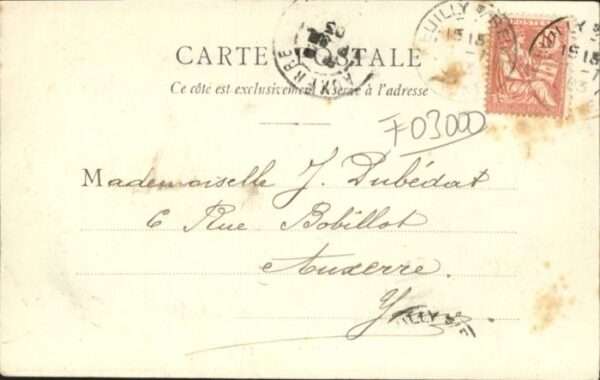 CARTE POSTALE
Ce côté est exclusivement réservé à l'adresse
F03000
Mademoiselle J. Dubédat
6 Rue Bobillot
Auxerre.
Yonne